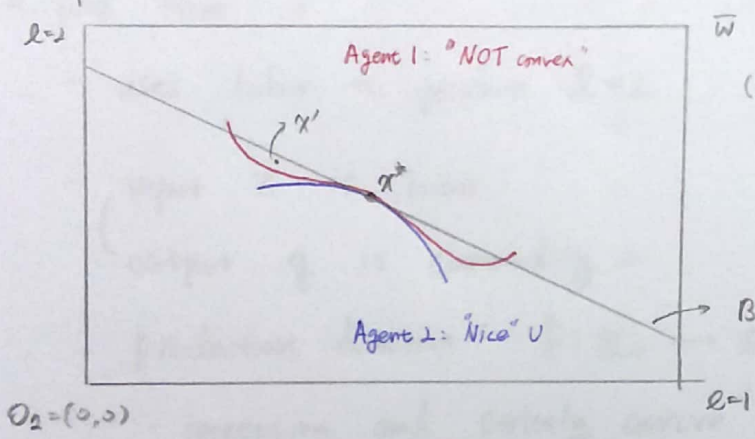 ℓ=2
W̅
Agent 1: "NOT convex"
(
x'
x*
B
Agent 2: "Nice" U
ℓ=1
O₂=(0,0)